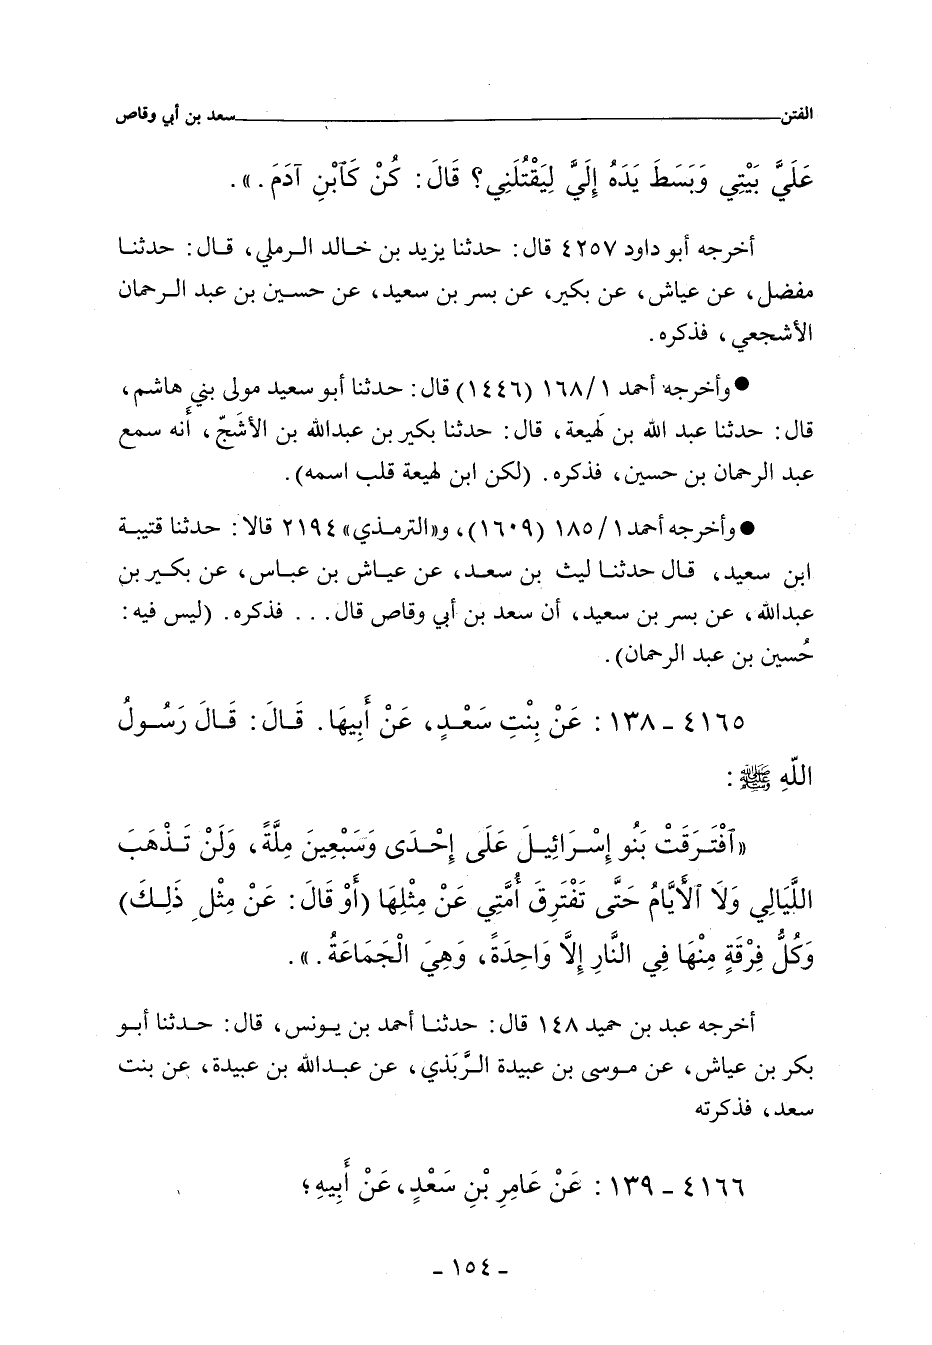 الفتن ــــــــــ سعد بن أبي وقاص
عَلَيَّ بَيْتِي وَبَسَطَ يَدَهُ إِلَيَّ لِيَقْتُلَنِي؟ قَالَ: كُنْ كَٱبْنِ آدَمَ.».
أخرجه أبو داود ٤٢٥٧ قال: حدثنا يزيد بن خالد الرملي، قال: حدثنا
مفضل، عن عياش، عن بكير، عن بسر بن سعيد، عن حسين بن عبد الرحمان
الأشجعي، فذكره.
●وأخرجه أحمد ١٦٨/١ (١٤٤٦) قال: حدثنا أبو سعيد مولى بني هاشم،
قال: حدثنا عبد الله بن لَهيعة، قال: حدثنا بكير بن عبدالله بن الأشَجّ، أنه سمع
عبد الرحمان بن حسين، فذكره. (لكن ابن لهيعة قلب اسمه).
●وأخرجه أحمد ١٨٥/١ (١٦٠٩)، و«الترمذي» ٢١٩٤ قالا: حدثنا قتيبة
ابن سعيد، قال حدثنا ليث بن سعد، عن عياش بن عباس، عن بكير بن
عبدالله، عن بسر بن سعيد، أن سعد بن أبي وقاص قال... فذكره. (ليس فيه:
حُسين بن عبد الرحمان).
٤١٦٥ - ١٣٨: عَنْ بِنْتِ سَعْدٍ، عَنْ أَبِيهَا. قَالَ: قَالَ رَسُولُ
اللّهِ ﷺ:
«ٱفْتَرَقَتْ بَنُو إِسْرَائِيلَ عَلَى إِحْدَى وَسَبْعِينَ مِلَّةً، وَلَنْ تَذْهَبَ
اللَّيَالِي وَلَا ٱلْأَيَّامُ حَتَّى تَفْتَرِقَ أُمَّتِي عَنْ مِثْلِهَا (أَوْ قَالَ: عَنْ مِثْلِ ذَلِكَ)
وَكُلُّ فِرْقَةٍ مِنْهَا فِي النَّارِ إِلَّا وَاحِدَةً، وَهِيَ الْجَمَاعَةُ.».
أخرجه عبد بن حميد ١٤٨ قال: حدثنا أحمد بن يونس، قال: حدثنا أبو
بكر بن عياش، عن موسى بن عبيدة الرَّبَذي، عن عبدالله بن عبيدة، عن بنت
سعد، فذكرته
٤١٦٦ - ١٣٩: عَنْ عَامِرِ بْنِ سَعْدٍ، عَنْ أَبِيهِ؛
- ١٥٤ -